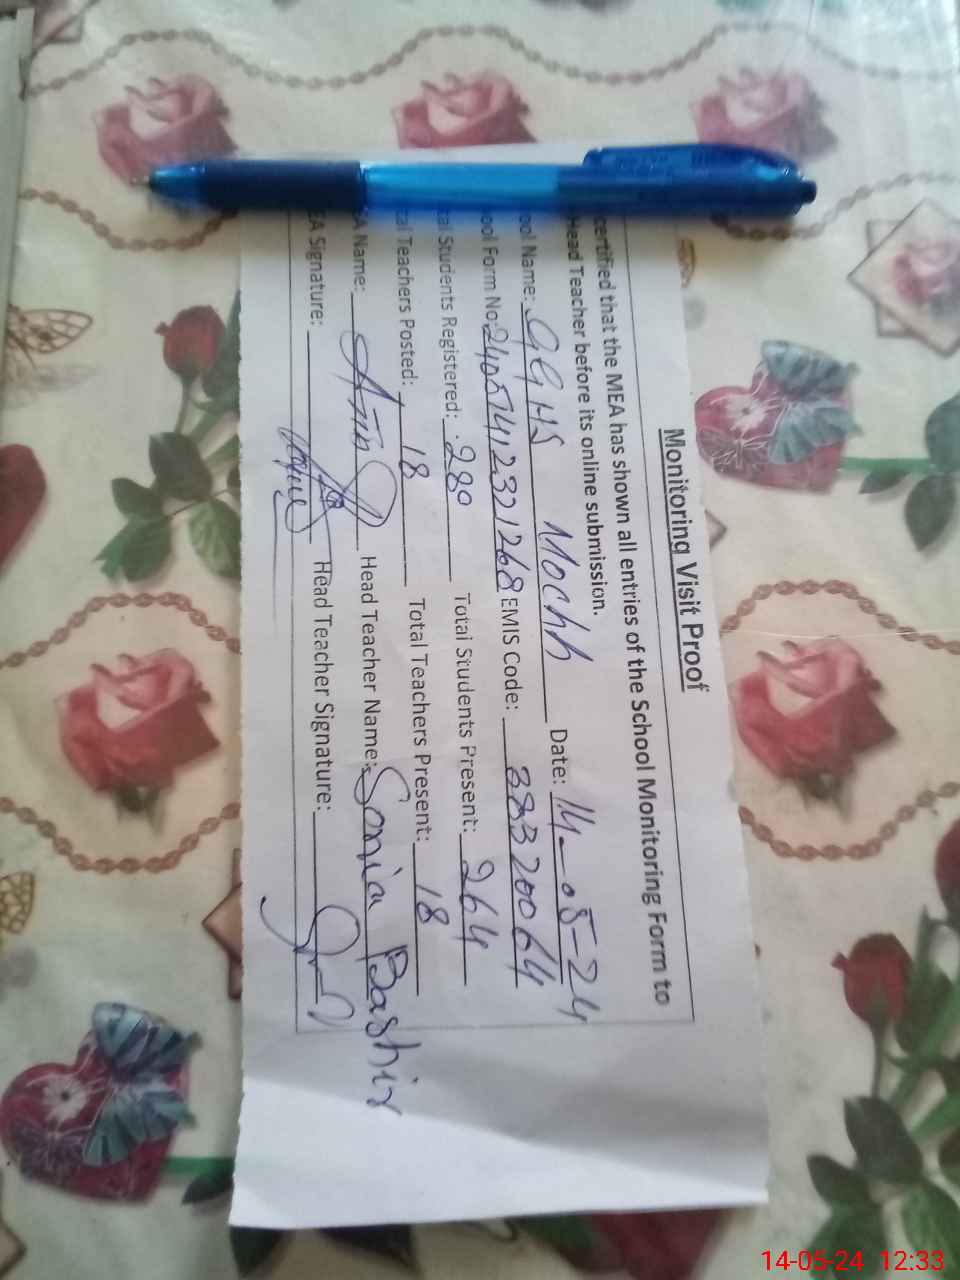 Monitoring Visit Proof
certified that the MEA has shown all entries of the School Monitoring Form to
Head Teacher before its online submission.
ool Name: GGHS Mochh Date: 14-05-24
ool Form No: EMIS Code: 38320064
al Students Registered: 280 Total Students Present: 264
tal Teachers Posted: 18 Total Teachers Present: 18
EA Name: Head Teacher Name: Sonia Bashir
EA Signature: Head Teacher Signature:
14-05-24 12:33